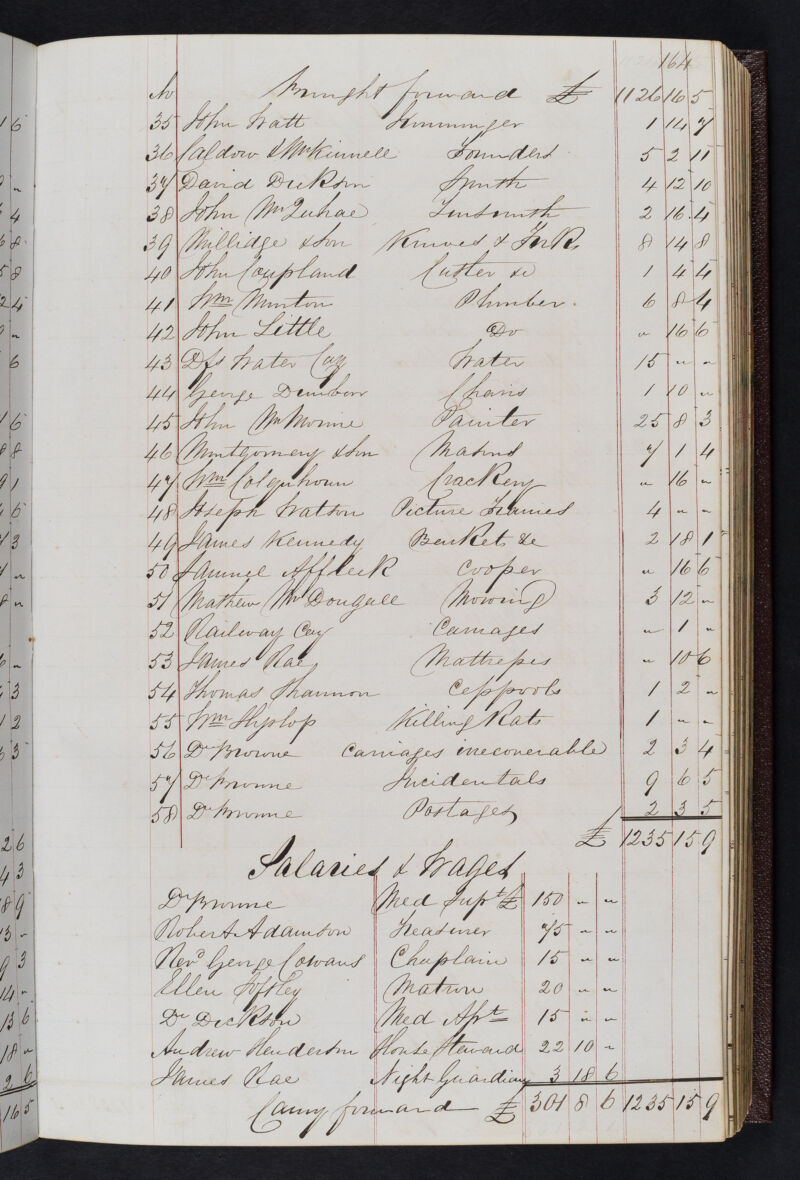 164
No Brought forward £ 1126 16 5
35 John Watt Ironmonger 1 14 7
36 Caldow & McKinnell Founders 5 2 11
37 David Dickson Smith 4 12 10
38 John McQuhae Tinsmith 2 16 4
39 Millidge & Son Knives & Forks 8 14 8
40 John Coupland Cutler &c 1 4 4
41 Wm Munton Plumber 6 8 4
42 John Little Do " 16 6
43 Dfs Water Coy Water 15 " "
44 George Dunbar Chairs 1 10 "
45 John McMorine Painter 25 8 3
46 Montgomery & Son Masons 7 1 4
47 Wm Colquhoun Crockery " 16 "
48 Joseph Watson Picture Frames 4 " "
49 James Kennedy Baskets &c 2 18 1
50 Samuel Affleck Cooper " 16 6
51 Mathew McDougall Mowing 3 12 "
52 Railway Coy Carriages " 1 "
53 James Rae Mattresses " 10 6
54 Thomas Shannon Cesspools 1 2 "
55 Wm Hyslop Killing Rats 1 " "
56 Dr Browne Carriages irrecoverable 2 3 4
57 Dr Browne Incidentals 9 6 5
58 Dr Browne Postages 2 3 5
£ 1235 15 9
Salaries & Wages
Dr Browne Med Supt £ 150 " "
Robert Adamson Treasurer 75 " "
Revd George Cowans Chaplain 15 " "
Ellen Matron 20 " "
Dr Dickson Med Asst 15 " "
Andrew Henderson House Steward 22 10 "
James Rae Night Guardian 3 18 6
Carry forward £ 301 8 6 1235 15 9